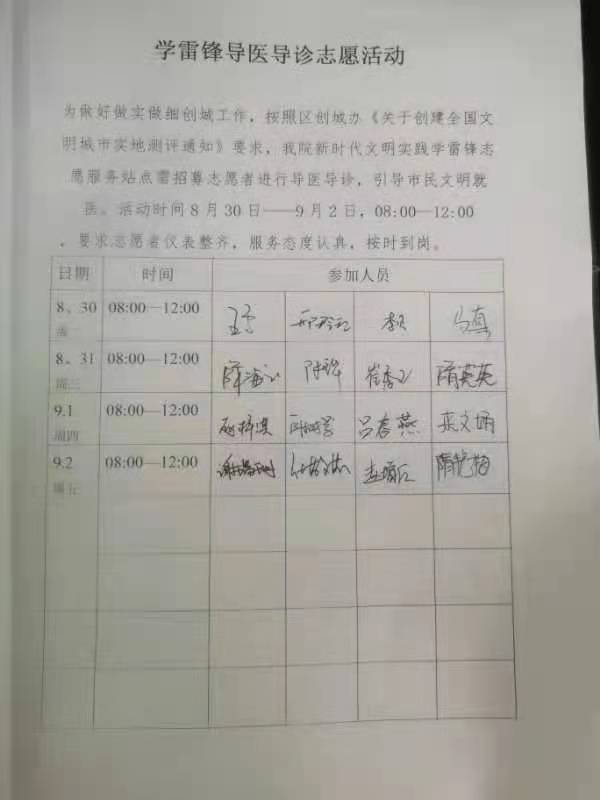 学雷锋导医导诊志愿活动
为做好做实做细创城工作，按照区创城办《关于创建全国文
明城市实地测评通知》要求，我院新时代文明实践学雷锋志
愿服务站点需招募志愿者进行导医导诊，引导市民文明就
医。活动时间8月30日——9月2日，08:00—12:00
，要求志愿者仪表整齐，服务态度认真，按时到岗。
日期 时间 参加人员
8、30 08:00—12:00 马真
周二
8、31 08:00—12:00 隋英英
周三
9.1 08:00—12:00 吕春燕
周四
9.2 08:00—12:00 隋艳梅
周五